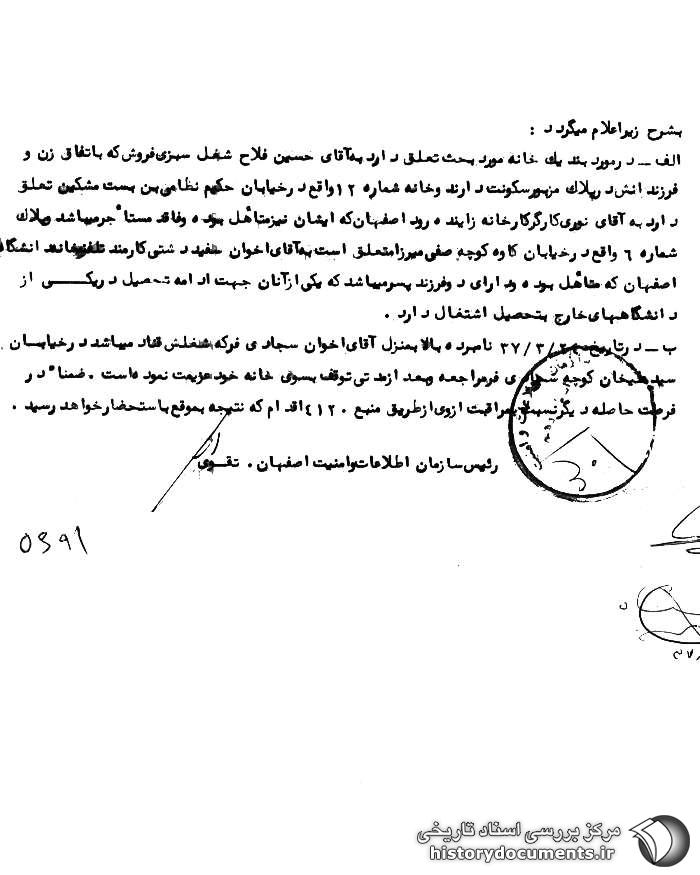 بشرح زیر اعلام میگردد :
الف ـ در مورد بند یك خانه مورد بحث تعلق دارد به آقای حسین فلاح شغل سبزی فروش که باتفاق زن و
فرزندانش در پلاك مزبور سکونت دارند وخانه شماره ۱۲ واقع در خیابان حکیم نظامی بن بست مشکین تعلق
دارد به آقای نوری کارگر کارخانه زاینده رود اصفهان که ایشان نیز متأهل بوده و فاقد مستأجر میباشد و پلاك
شماره ٦ واقع در خیابان کاوه کوچه صفی میرزا متعلق است به آقای اخوان سفید دشتی کارمند دانشگاه
اصفهان که متأهل بوده و دارای دو فرزند پسر میباشد که یکی از آنان جهت ادامه تحصیل در یکی از
دانشگاههای خارج بتحصیل اشتغال دارد .
ب ـ در تاریخ ۳۷/۳/ نامبرده بالا بمنزل آقای اخوان سجادی فر که شغلش قناد میباشد در خیابان
سید علیخان کوچه سجادی فر مراجعه و بعد از مدتی توقف بسوی خانه خود عزیمت نموده است . ضمناً در
فرصت حاصله دیگر نسبت بمراقبت از وی از طریق منبع ٤۱۲۰ اقدام که نتیجه بموقع باستحضار خواهد رسید .
رئیس سازمان اطلاعات و امنیت اصفهان . تقوی
۳۰
مرکز بررسی اسناد تاریخی
historydocuments.ir